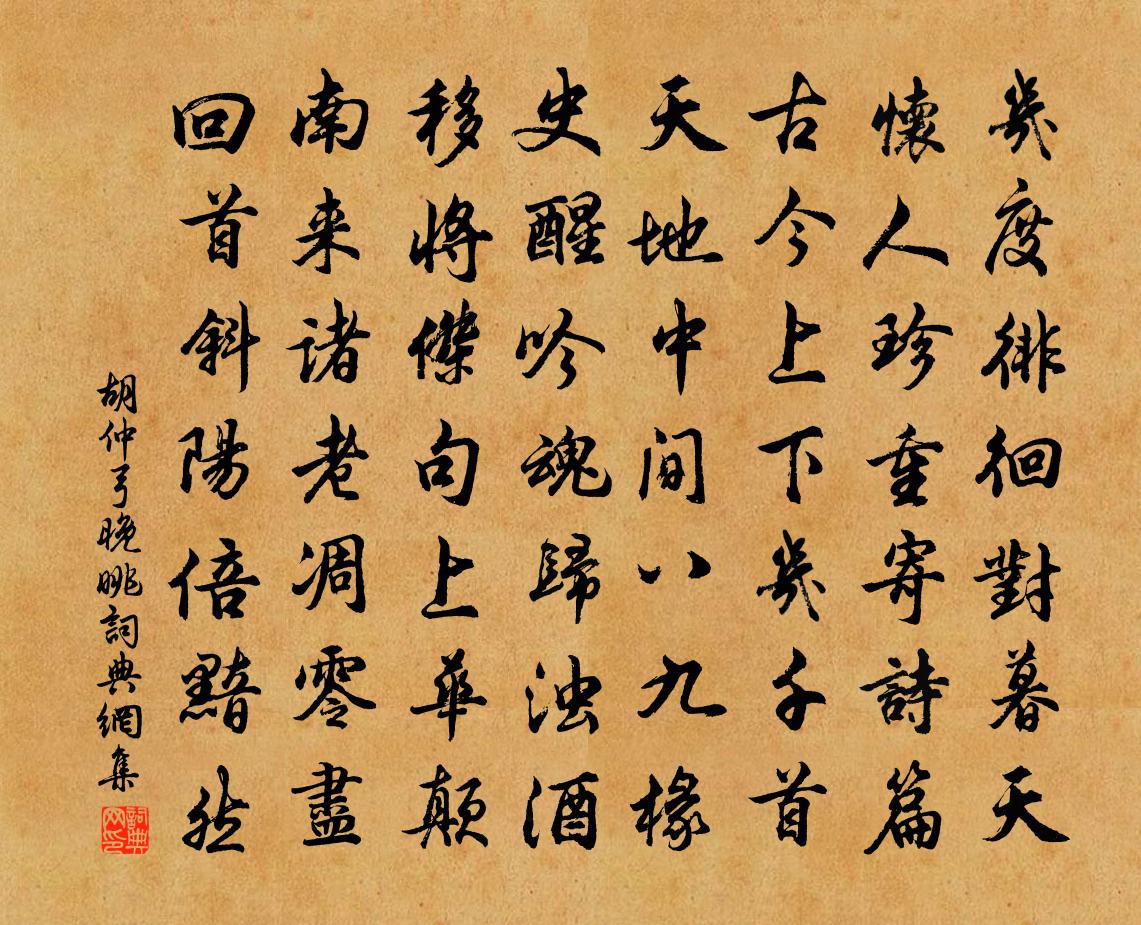 幾度徘徊對暮天
懷人珍重寄詩篇
古今上下幾千首
天地中間八九椽
史醒吟魂歸浊酒
移將傑句上華顛
南来诸老凋零盡
回首斜陽倍黯然
胡仲弓晚眺詞典網集
詞典
网印